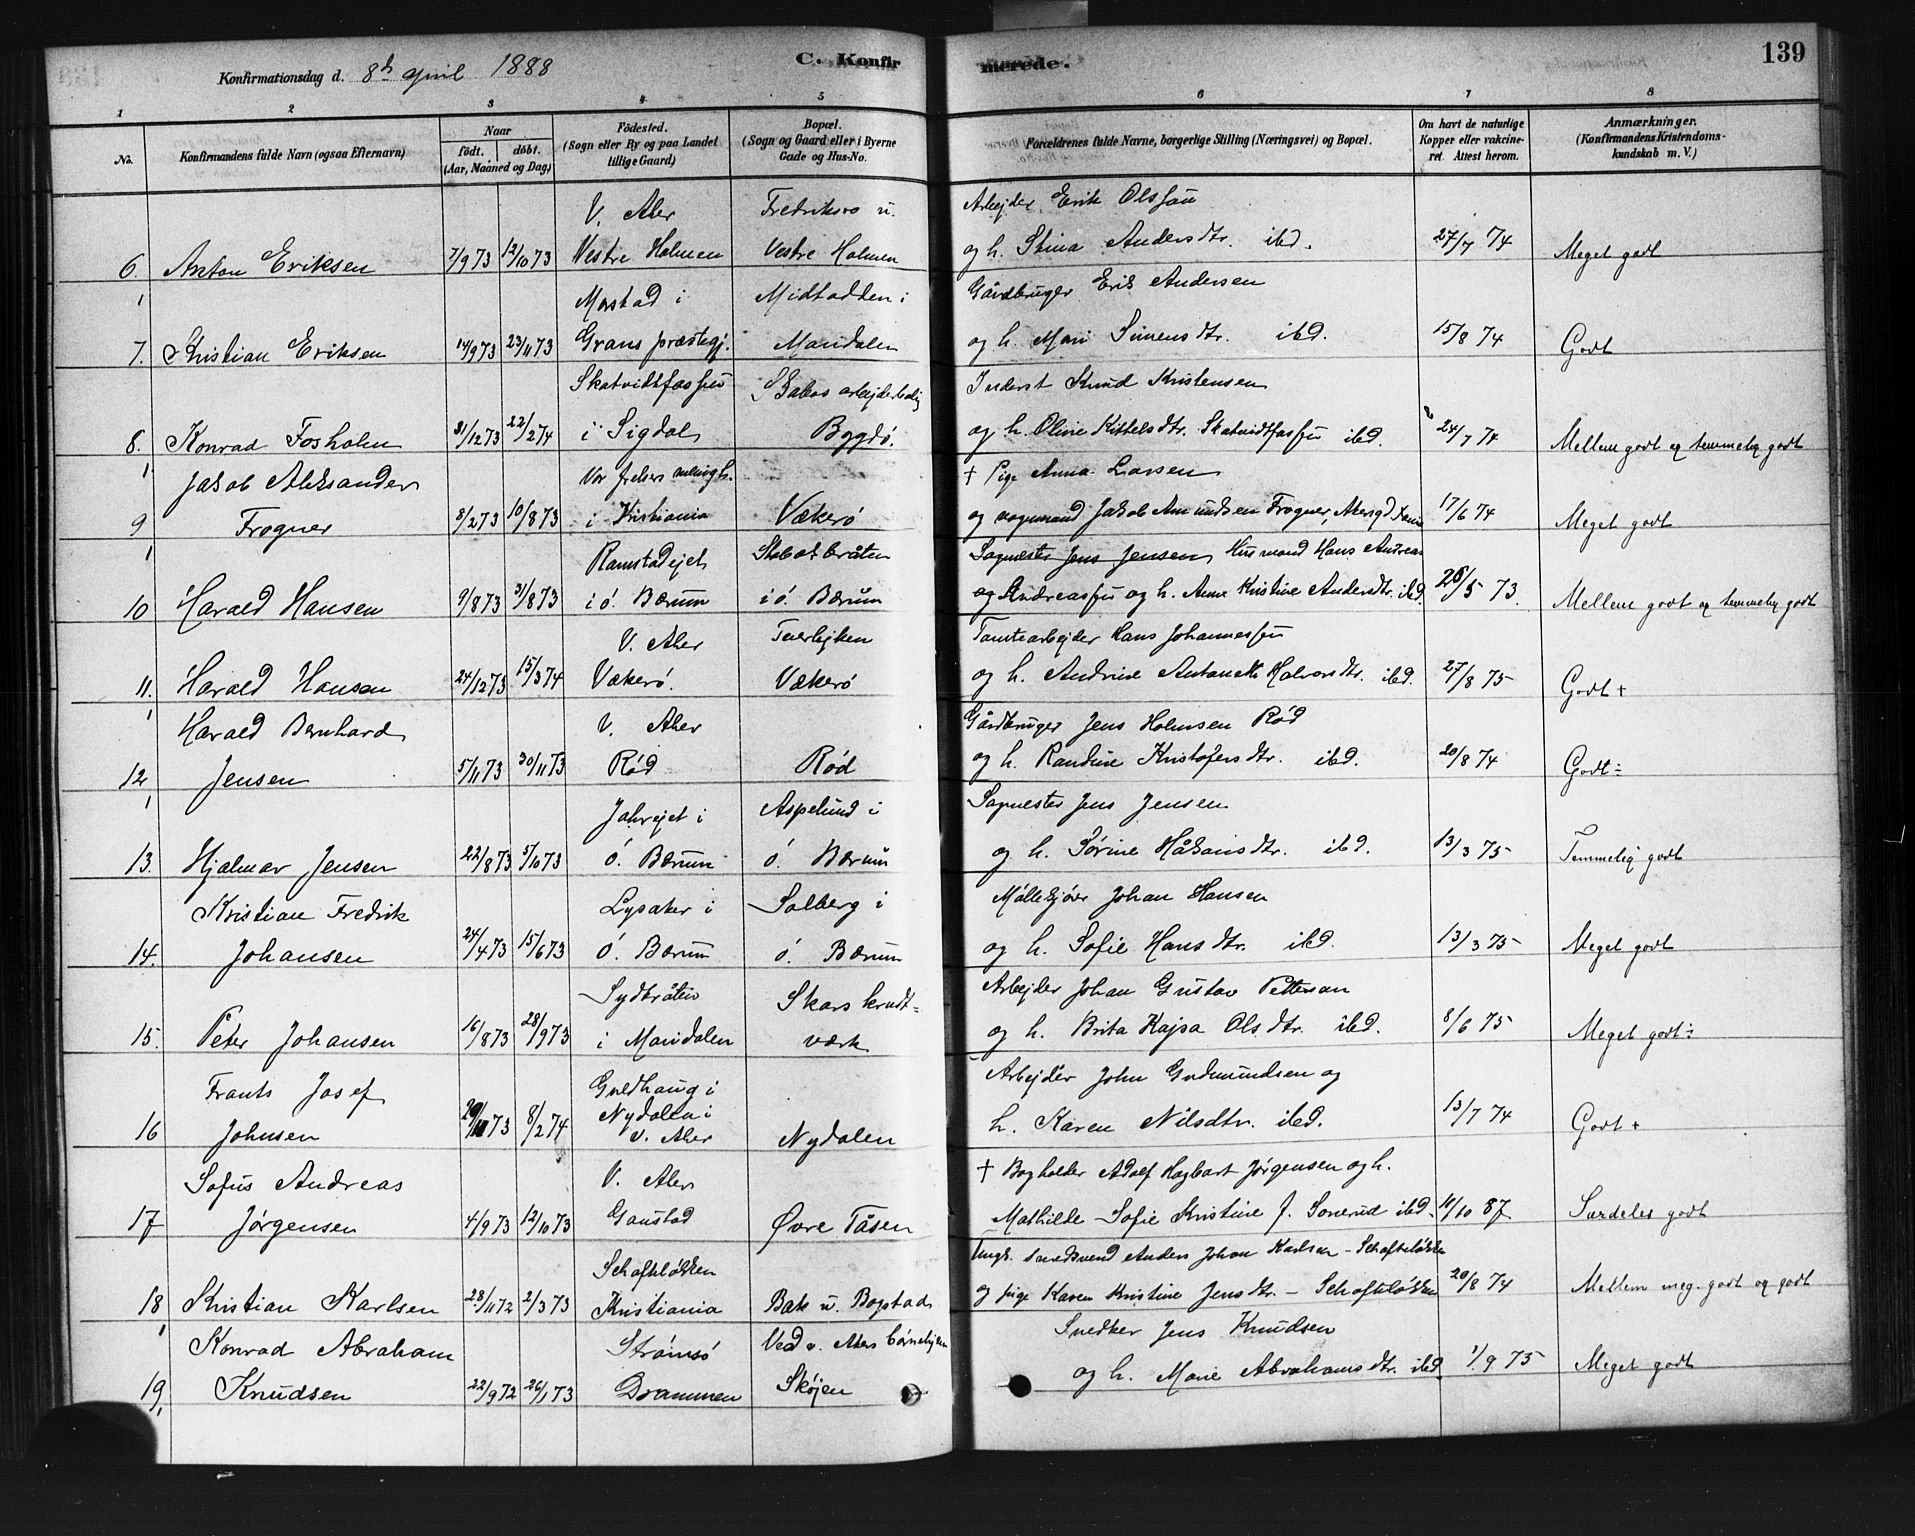 Konfirmationsdag d. 8de april 1888 C. Konfirmerede. 139
1 2 3 4 5 6 7 8
No. Konfirmandens fulde Navn (ogsaa Efternavn) Naar födt. döbt. (Aar, Maaned og Dag) Födested. (Sogn eller By og paa Landet tillige Gaard) Bopæl. (Sogn og Gaard eller i Byerne Gade og Hus-No. Forældrenes fulde Navne, borgerlige Stilling (Næringsvei) og Bopæl. Om havt de naturlige Kopper eller vakcineret. Attest herom. Anmærkninger. (Konfirmandens Kristendomskundskab m. V.)
V. Aker Fredriksro u. Arbejder Erik Olssøn
6. Anton Eriksen 7/9 73 12/10 73 Vestre Holmen Vestre Holmen og h. Stina Andersdtr. ibd. 27/7 74 Meget godt
Morstad i Midtodden i Gårdbruger Erik Andersen
7. Kristian Eriksen 14/9 73 23/11 73 Grans præstegj. Maridalen og h. Mari Simensdtr. ibd. 15/8 74 Godt
Skatvidtfossen Skabos arbejderbolig Inderst Knud Kristensen
8. Konrad Fosholm 31/12 73 22/2 74 i Sigdal Bygdö. og h. Oline Kittelsdtr. Skatvidtfossen ibd. 24/7 74 Mellem godt og temmelig godt
Jakob Aleksander Vor frelsers menigh. † Pige Anna Larsen
9 Frogner 8/2 73 10/8 73 i Kristiania Vækerö og vognmand Jakob Amundsen Frogner, 17/6 74 Meget godt
Ramstadejet Stabækbråten Sagmester Jens Jensen Husmand Hans Andreas
10 Harald Hansen 9/8 73 31/8 73 i ö. Bærum i ö. Bærum og Andreassen og h. Anne Kristine Andersdtr. ibd. 26/5 73. Mellem godt og temmelig godt
V. Aker Tuerløkken Tomtearbejder Hans Johannessen
11. Harald Hansen 24/12 73 15/3 74 Vækerö. Vækerö og h. Andrine Antonette Halvorsdtr. ibd. 27/8 75 Godt +
Harald Bernhard V. Aker Gårdbruger Jens Holmsen Röd
12 Jensen 5/11 73 30/11 73 Röd Röd og h. Randine Kristofersdtr. ibd. 20/8 74 Godt ÷
Jahrejet i Aspelund i Sagmester Jens Jensen
13. Hjalmar Jensen 22/8 73 5/10 73 ö. Bærum ö. Bærum og h. Sörine Håkansdtr. ibd. 13/3 75 Temmelig godt
Kristian Fredrik Lysaker i Solberg i Möllekjörer Johan Hansen
14. Johansen 24/4 73 15/6 73 ö. Bærum ö. Bærum og h. Sofie Hansdtr. ibd. 13/3 75 Meget godt
Sydbråten Skars krudt= Arbejder Johan Gustav Petterson
15. Peter Johansen 16/8 73 28/9 73 i Maridalen værk og h. Brita Kajsa Olsdtr. ibd. 8/6 75 Meget godt ÷
Frants Josef Guldhaug i Arbejder John Gudmundsen og
16 Johnsen 29/11 73 8/2 74 Nydalen i V. Aker Nydalen h. Karen Nilsdtr. ibd. 13/7 74 Godt +
Sofus Andreas V. Aker † Bogholder Adolf Hagbart Jörgensen og h.
17 Jörgensen 4/9 73 12/10 73 Gaustad Øvre Tåsen Mathilde Sofie Kristine f. Sonerud ibd. 11/10 87 Særdeles godt
Schafteløkken Ungk. Anders Johan Karlsen - Schafteløkken
18 Kristian Karlsen 28/11 72 2/3 73 Kristiania Bak u. Bogstad og pige Karen Kristine Jensdtr. - Schafteløkken 20/8 74 Mellem meg. godt og godt
Konrad Abraham Strömsö Ved v. Akers börnehjem Snedker Jens Knudsen
19 Knudsen 22/9 72 26/1 73 Drammen Sköjen og h. Marie Abrahamsdtr. ibd 1/9 75 Meget godt